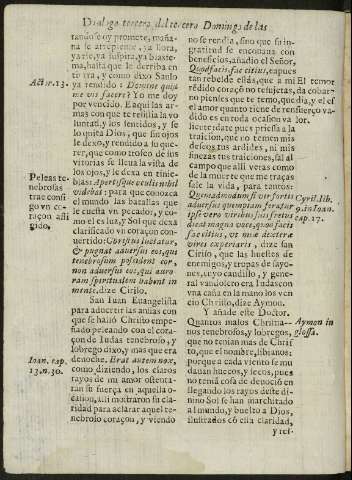 Dialogo tercero del tercero Domingo de las
tando se oy promete, maña-
na se arrepiente, ya llora,
ya rie, ya suspira, ya blas-
tema, hasta que le derriba en
Act or. 13.
tierra, y como dixo Saulo
ya rendido: Domine quid
me vis facere? Yo me doy
por vencido. E aqui las ar-
mas con que te resistia la vo
luntad, y los sentidos, y se
lo quita Dios, que sin ojos
le dexo, y rendido a lo que-
rer, que como trofeo de sus
vitorias se lleua la vista de
los ojos, y le dexa en tinie-
Peleas te-
nebrosas
trae consi-
go vn co-
raçon afli
gido,
blas: Apertisque oculis nihil
videbat: para que conozca
el mundo las batallas que
le cuesta vn pecador, y co-
mo el es luz, y Sol que dexa
clarificado vn coraçon con-
uertido: Christus luctatur,
& pugnat aduersus eos, qui
tenebrosum possident cor,
non aduersus eos, qui auro-
ram spiritualem habent in
mente, dize Cirilo.
San Iuan Euangelista
para aduertir las ansias con
que se hallò Christo empe-
ñado peleando con el cora-
çon de Iudas tenebroso, y
lobrego dixo, y mas que era
Ioan. cap.
13. n. 30.
de noche. Erat autem nox,
como diziendo, los claros
rayos de mi amor ostenta-
ran su fuerça en aquella o-
casion, alli mostraron su cla-
ridad para aclarar aquel te-
nebroso coraçon, y viendo
no se rendia, sino que su in-
gratitud se encontaua con
beneficios, añadio el Señor.
Quod facis, fac citius, e apues
tan rebelde estàs, que a mi
rèdido coraçò no te sujetas,
no pienses que te temo, que
el amor quanto tiene de
dio es en toda ocasion va lor.
El temor
da cobar-
dia, y el es
fuerço va
licuerdate pues priessa a la
traicion, que no temen mis
deseos tus ardides, ni mis
finezas tus traiciones, sal al
campo que alli veras como
de la muerte que me traças
sale la vida, para tantos:
Quemadmodum si vir fortis
aduersus quemptam feratur
ipse vero viribus suis fretus
dicat magna voce, quod facis
fac citius, vt meæ dexteræ
vires experiaris, dize san
Cyril. lib.
9. in Ioan.
cap. 17.
Cirilo, que las huestes de
enemigos, y tropas de sayo-
nes, cuyo caudillo, y gene-
ral vandolero era Iudas con
vna caña en la mano los ven
cio Christo, dize Aymon.
Y añade este Doctor.
Quantos malos Christia-
nos tenebrosos, y lobregos,
que no tenian mas de Chris-
to, que el nombre, liuianos;
porque a cada viento se mu
dauan huecos, y secos, pues
no temã cosa de denociò en
llegando los rayos deste di-
uino Sol se han marchitado
al mundo, y buelto a Dios,
ilustrados cò ella claridad,
Aymon in
glossa.
y res-